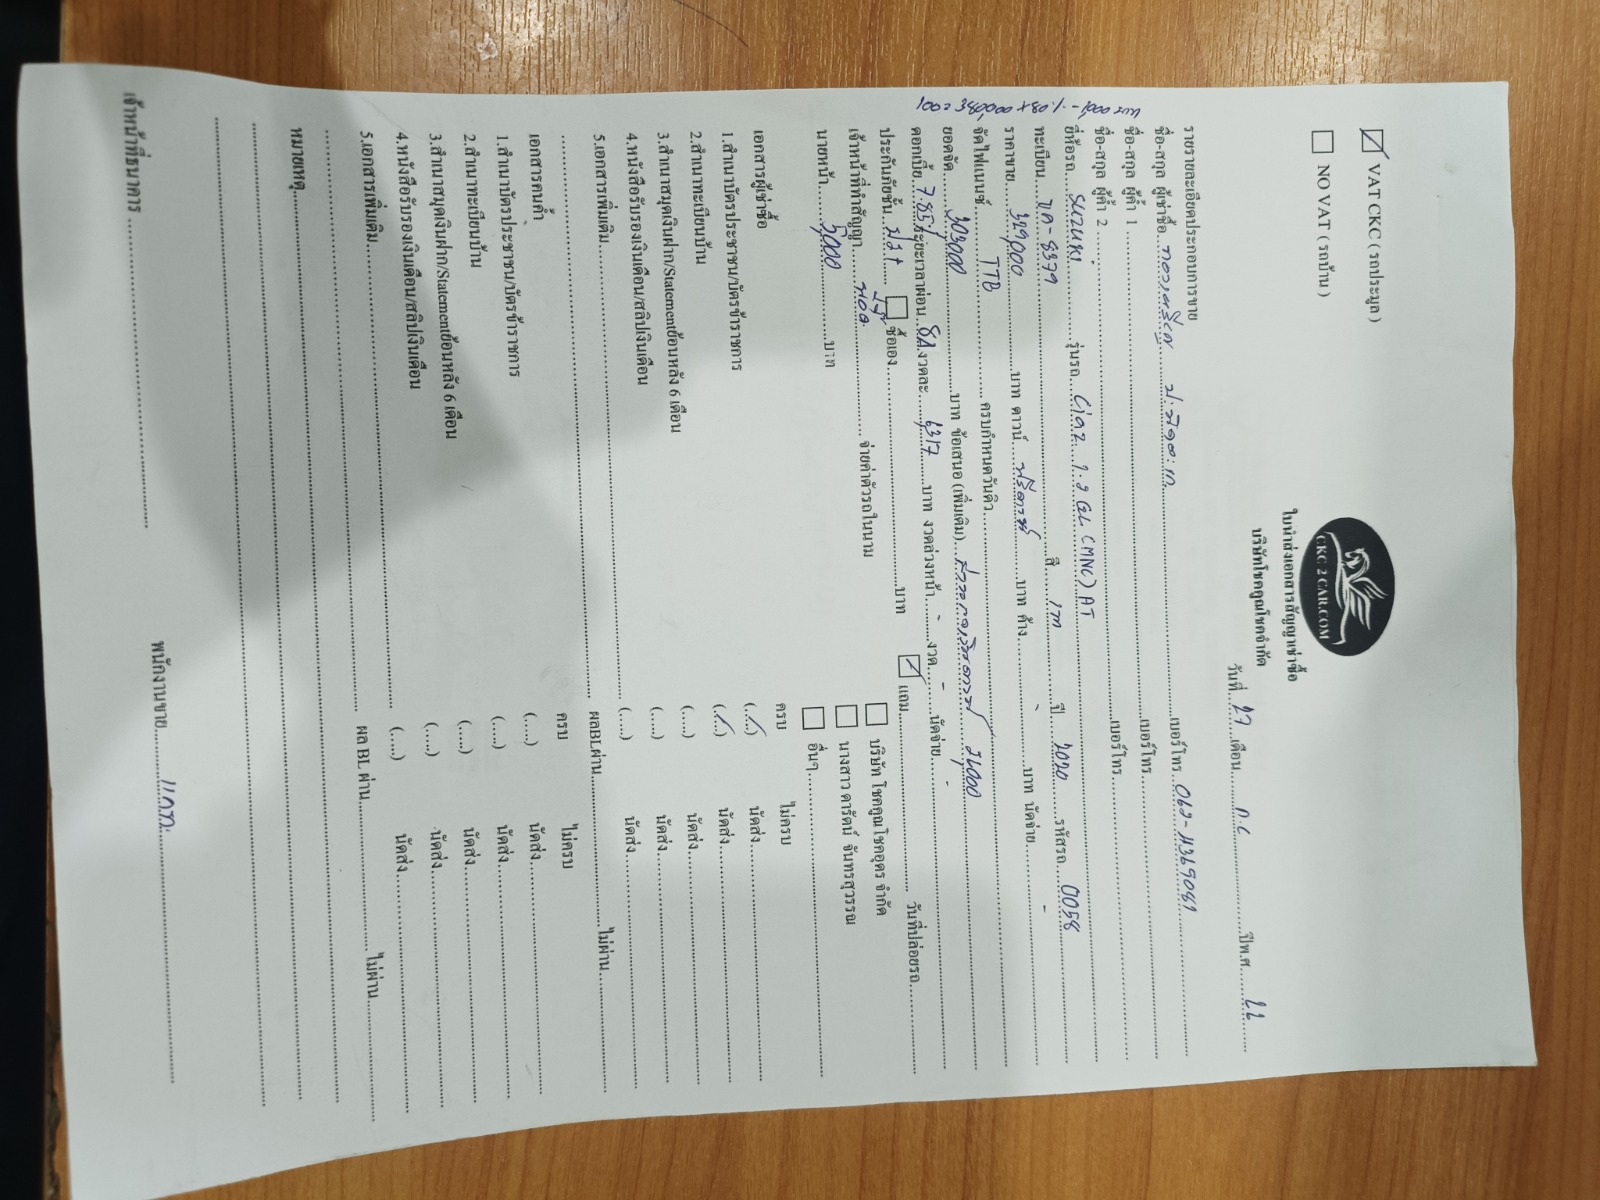 CKC 2 CAR.COM
ใบนำส่งเอกสารสัญญาเช่าซื้อ
บริษัทโชคคูณโชคจำกัด
VAT CKC ( รถประมูล )
NO VAT ( รถบ้าน )
วันที่ 27 เดือน ก.ค ปีพ.ศ.
รายรายละเอียดประกอบการขาย
ชื่อ-สกุล ผู้เช่าซื้อ เบอร์โทร
ชื่อ-สกุล ผู้ค้ำ 1 เบอร์โทร
ชื่อ-สกุล ผู้ค้ำ 2 เบอร์โทร
ยี่ห้อรถ SUZUKI รุ่นรถ 1.2 GL (MNC) AT
ทะเบียน สี เทา ปี 2020 รหัสรถ 0058
ราคาขาย 329,000 บาท ดาวน์ ฟรีดาวน์ บาท ค้าง - บาท นัดจ่าย -
จัดไฟแนนซ์ TTB ครบกำหนดวันคิว
ยอดจัด 303000 บาท ข้อเสนอ (เพิ่มเติม)
ดอกเบี้ย 7.85% ระยะเวลาผ่อน 84 งวดละ บาท งวดล่วงหน้า - งวด - นัดจ่าย -
ประกันภัยชั้น ซื้อเอง บาท แถม วันที่ปล่อยรถ
เจ้าหน้าที่ทำสัญญา จ่ายค่าตัวรถในนาม บริษัท โชคคูณโชคอุดร จำกัด
นางสาว ดารัตน์ จันทรสุวรรณ
นายหน้า 5,000 บาท อื่นๆ
เอกสารผู้เช่าซื้อ ครบ ไม่ครบ
1.สำเนาบัตรประชาชน/บัตรข้าราชการ (../..) นัดส่ง
2.สำเนาทะเบียนบ้าน (../..) นัดส่ง
3.สำเนาสมุดเงินฝาก/Statementย้อนหลัง 6 เดือน (....) นัดส่ง
4.หนังสือรับรองเงินเดือน/สลิปเงินเดือน (....) นัดส่ง
5.เอกสารเพิ่มเติม (....) นัดส่ง
ผลBLผ่าน ไม่ผ่าน
เอกสารคนค้ำ ครบ ไม่ครบ
1.สำเนาบัตรประชาชน/บัตรข้าราชการ (....) นัดส่ง
2.สำเนาทะเบียนบ้าน (....) นัดส่ง
3.สำเนาสมุดเงินฝาก/Statementย้อนหลัง 6 เดือน (....) นัดส่ง
4.หนังสือรับรองเงินเดือน/สลิปเงินเดือน (....) นัดส่ง
5.เอกสารเพิ่มเติม (....) นัดส่ง
ผล BL ผ่าน ไม่ผ่าน
หมายเหตุ
เจ้าหน้าที่ธนาคาร พนักงานขาย